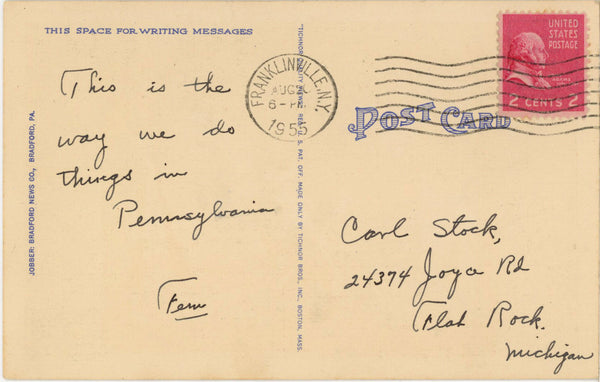 THIS SPACE FOR WRITING MESSAGES
This is the
way we do
things in
Pennsylvania
Fern
JOBBER: BRADFORD NEWS CO., BRADFORD, PA.
FRANKLINVILLE, N.Y.
AUG
6 - PM
1955
REG. U. S. PAT. OFF. MADE ONLY BY TICHNOR BROS., INC., BOSTON, MASS.
UNITED
STATES
POSTAGE
2 CENTS 2
POST CARD
Carl Stock,
24374 Joya Rd
Flat Rock.
Michigan